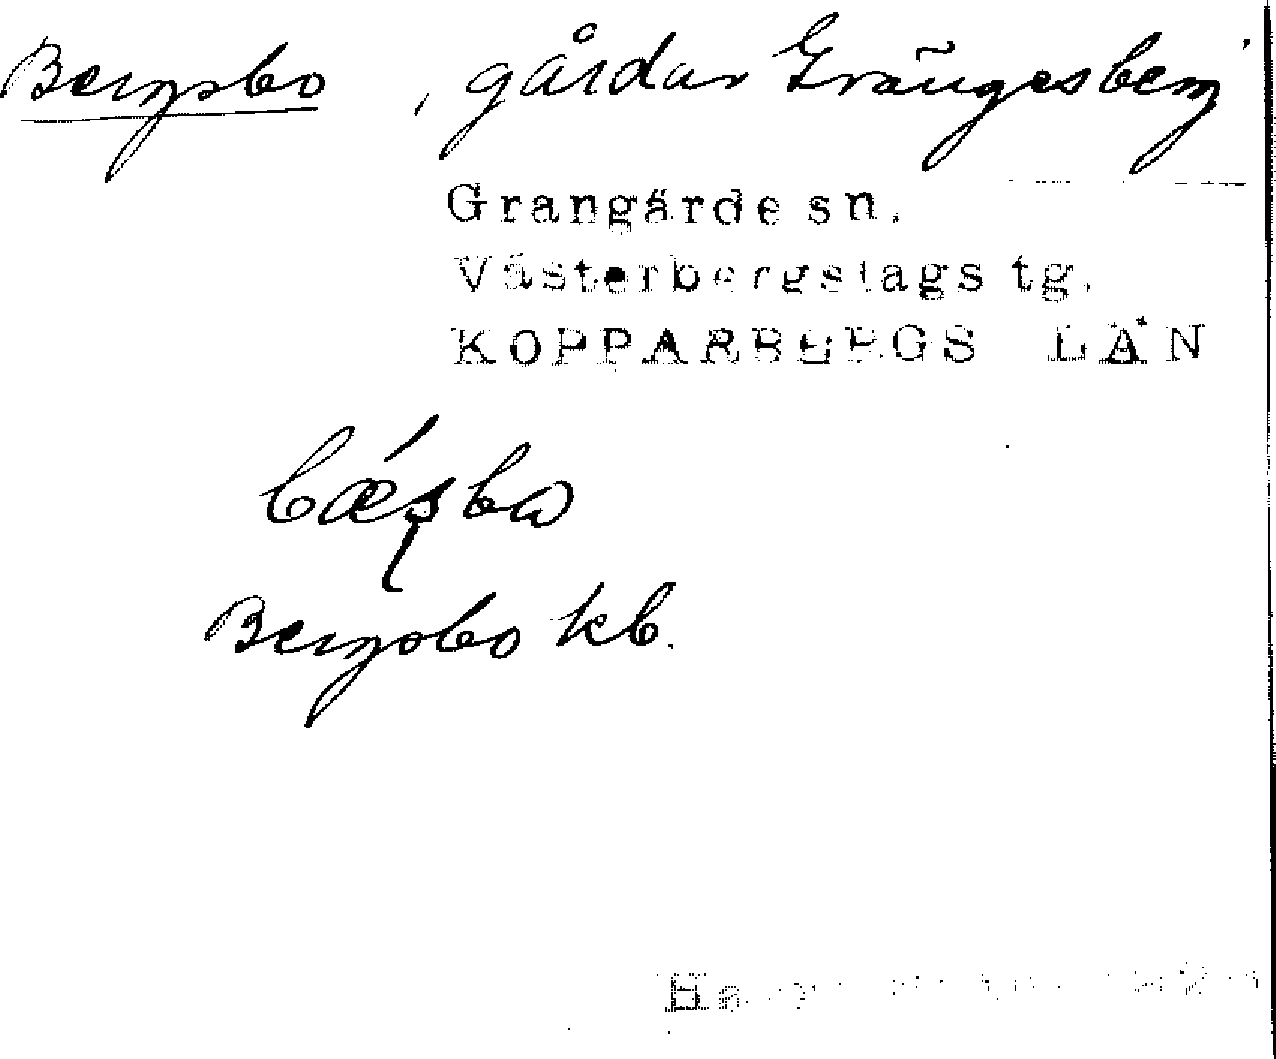 Bergsbo, gårdar Grängesberg
Grangärde sn.
Västerbergslags tg.
KOPPARBERGS LÄN
Bergsbo kb.